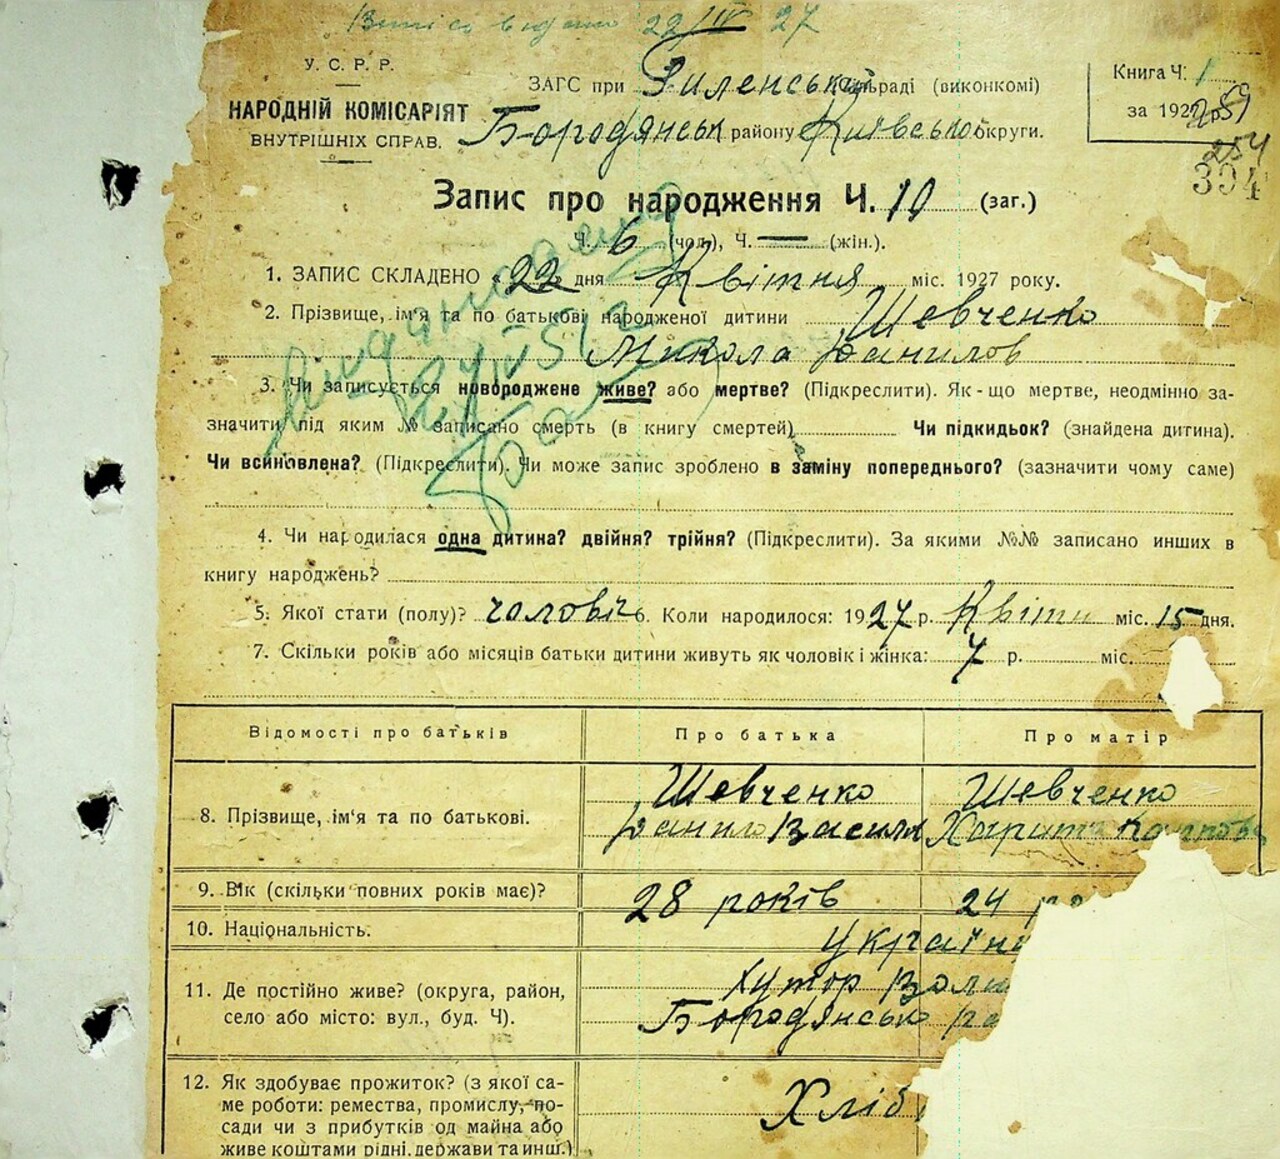 22/IV 27
У. С. Р. Р.
НАРОДНІЙ КОМІСАРІЯТ
ВНУТРІШНІХ СПРАВ.
ЗАГС при Филенській сільраді (виконкомі)
Бородянськ району Київської округи.
Книга Ч. 1
за 1927 р.
254
304
Запис про народження Ч. 10 (заг.)
Ч. 6 (чол.), Ч. — (жін.).
1. ЗАПИС СКЛАДЕНО „22" дня Квітня міс. 1927 року.
2. Прізвище, ім'я та по батькові народженої дитини Шевченко
Микола Данилов
3. Чи записується новороджене живе? або мертве? (Підкреслити). Як-що мертве, неодмінно за-
значити під яким № записано смерть (в книгу смертей) Чи підкидьок? (знайдена дитина).
Чи всиновлена? (Підкреслити). Чи може запис зроблено в заміну попереднього? (зазначити чому саме)
4. Чи народилася одна дитина? двійня? трійня? (Підкреслити). За якими №№ записано инших в
книгу народжень?
5. Якої стати (полу)? чоловіч 6. Коли народилося: 1927 р. Квітн міс. 15 дня.
7. Скільки років або місяців батьки дитини живуть як чоловік і жінка: 7 р. міс.
Відомості про батьків Про батька Про матір
8. Прізвище, ім'я та по батькові. Шевченко Данило Васил Шевченко
9. Вік (скільки повних років має)? 28 років 24
10. Національність. україн
11. Де постійно живе? (округа, район, хутор
село або місто: вул., буд. Ч). Бородянсько
12. Як здобуває прожиток? (з якої са-
ме роботи: ремества, промислу, по- Хліб
сади чи з прибутків од майна або
живе коштами рідні, держави та инш.)